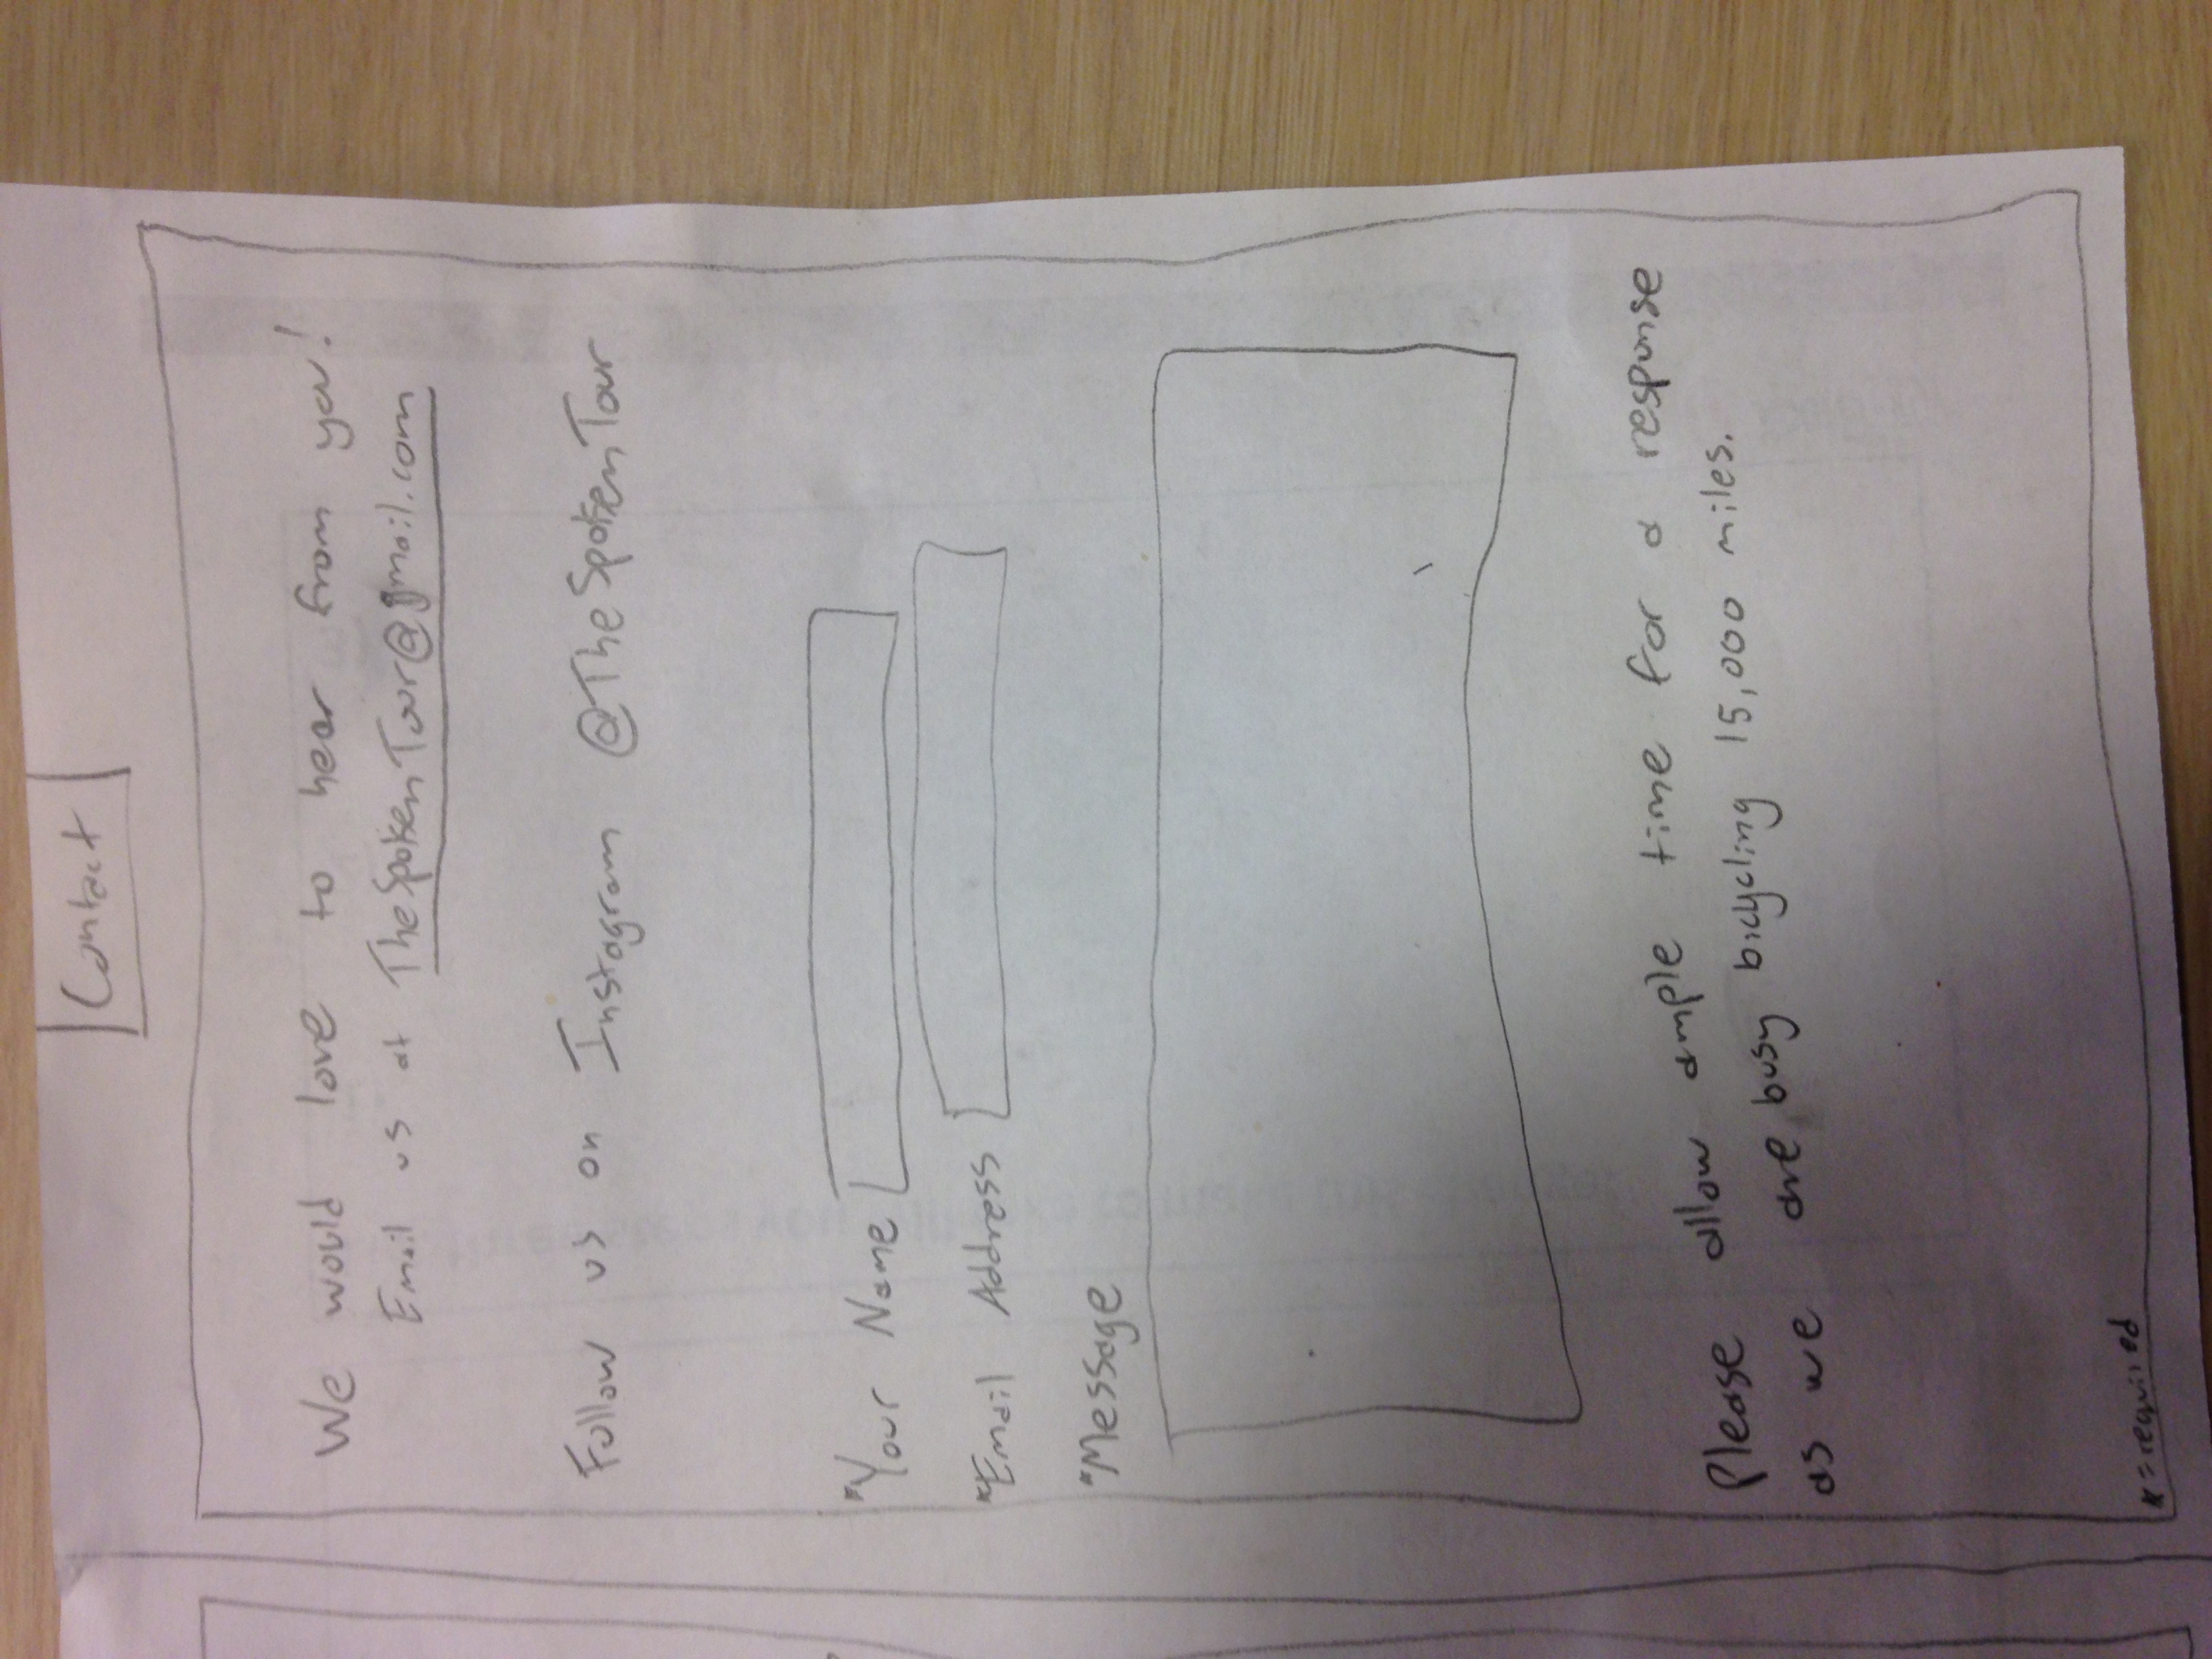 Contact
We would love to hear from you!
Email us at TheSpokenTour@gmail.com
Follow us on Instagram @TheSpokenTour
*Your Name
*Email Address
*Message
Please allow ample time for a response
as we are busy bicycling 15,000 miles.
*=required